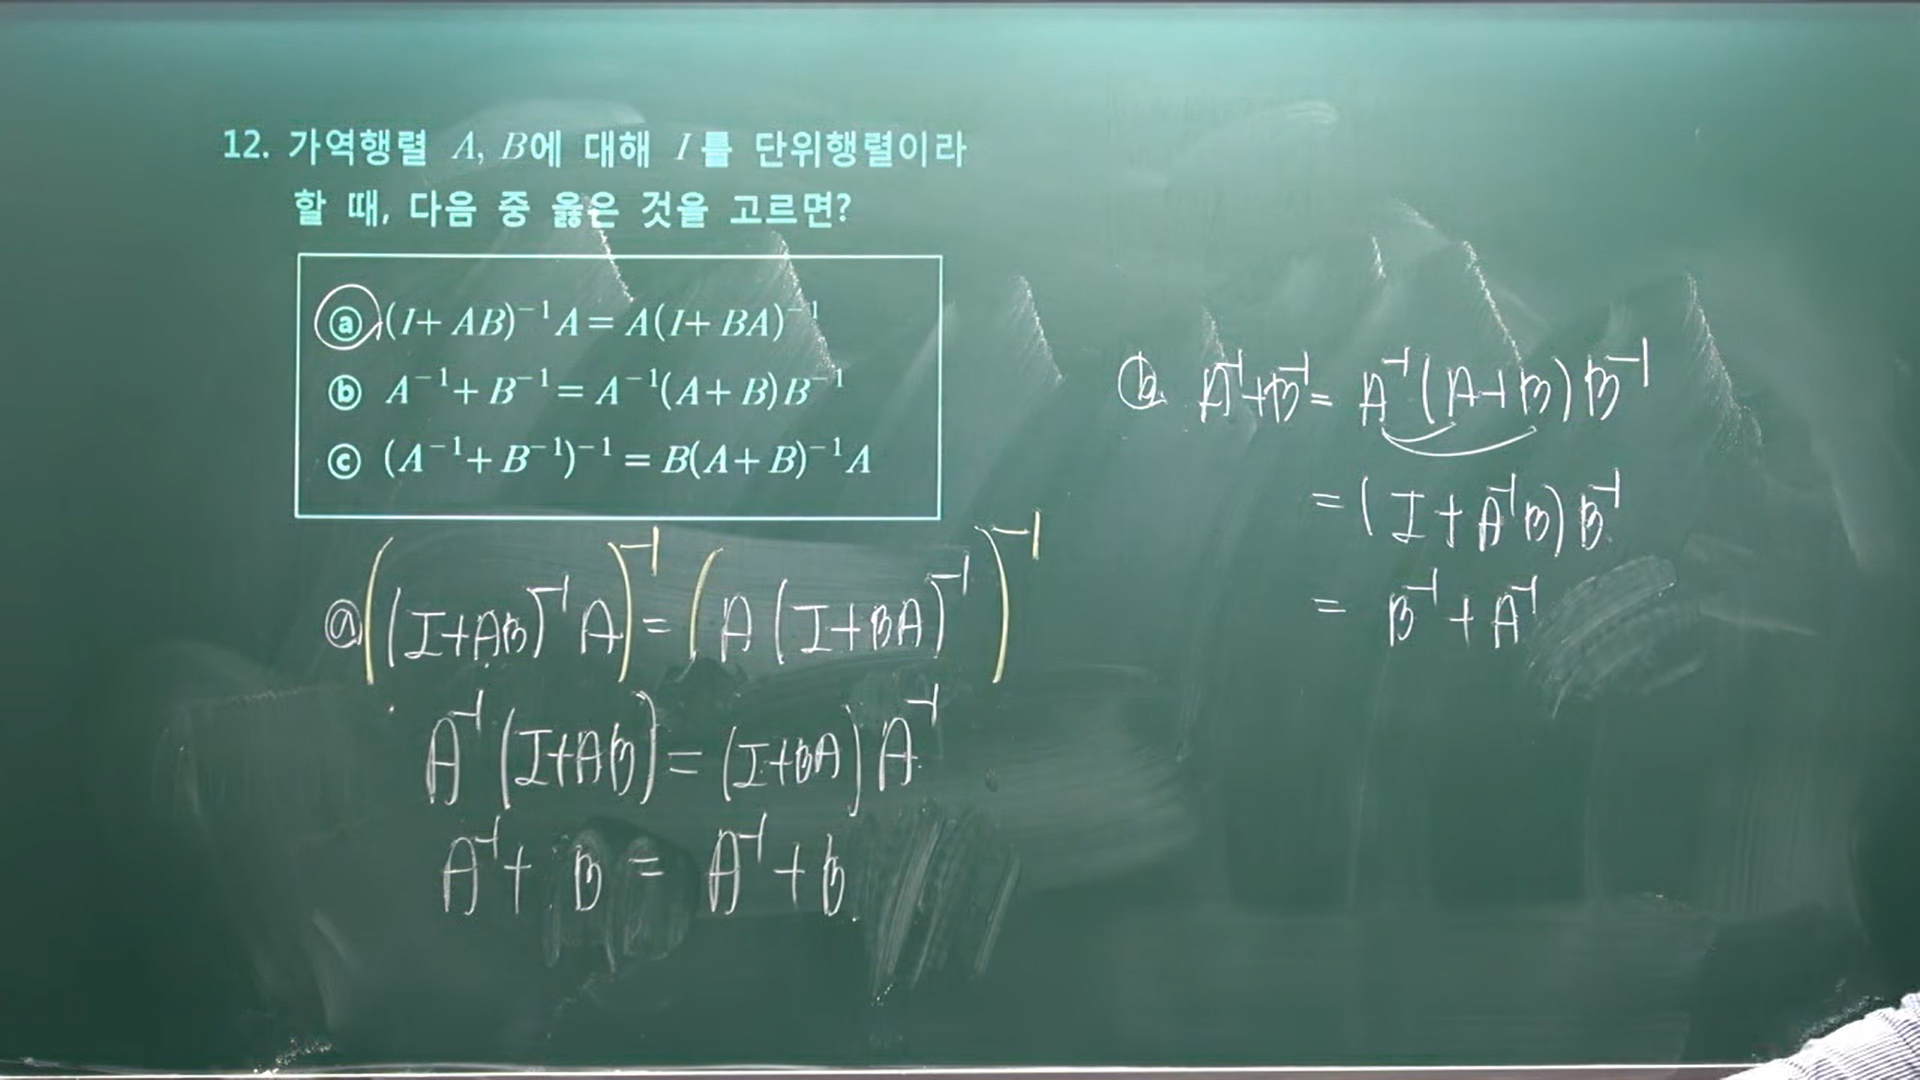 12. 가역행렬 A, B에 대해 I를 단위행렬이라
할 때, 다음 중 옳은 것을 고르면?
ⓐ (I+AB)⁻¹A=A(I+BA)⁻¹
ⓑ A⁻¹+B⁻¹=A⁻¹(A+B)B⁻¹
ⓒ (A⁻¹+B⁻¹)⁻¹=B(A+B)⁻¹A
ⓐ ((I+AB)⁻¹A)⁻¹=(A(I+BA)⁻¹)⁻¹
A⁻¹(I+AB)=(I+BA)A⁻¹
A⁻¹+B=A⁻¹+B
ⓑ A⁻¹+B⁻¹=A⁻¹(A+B)B⁻¹
=(I+A⁻¹B)B⁻¹
=B⁻¹+A⁻¹